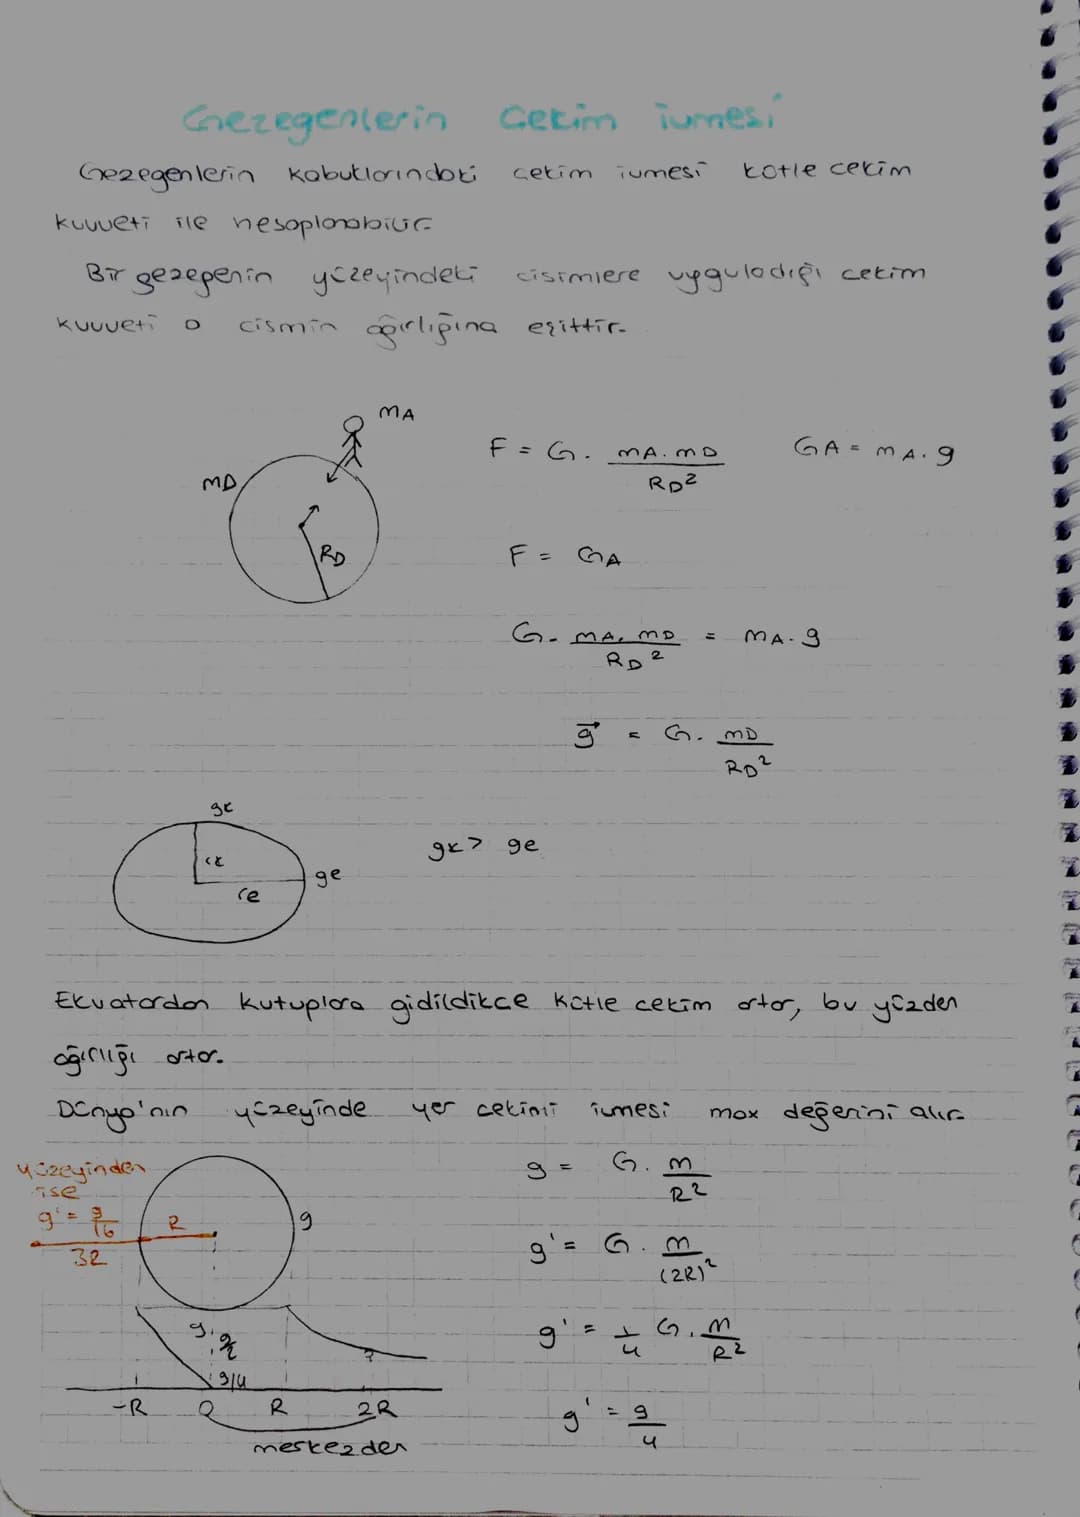 Gezegenlerin Çekim İvmesi
Gezegenlerin kabuklarındaki çekim ivmesi kütle çekim
kuvveti ile hesaplanabilir.
Bir gezegenin yüzeyindeki cisimlere uyguladığı çekim
kuvveti o cismin ağırlığına eşittir.
mA
mD
RD
F = G. mA.mD / RD² GA = mA.g
F = GA
G. mA.mD / RD² = mA.g
g⃗ = G. mD / RD²
gk
rk
re
ge
gk > ge
Ekvatordan kutuplara gidildikçe kütle çekim artar, bu yüzden
ağırlığı artar.
Dünya'nın yüzeyinde yer çekimi ivmesi max değerini alır.
yüzeyinden
ise
g' = g/16
R
3R
g
g = G. m / R²
g' = G. m / (2R)²
g' = 1/4 G. m / R²
g' = g/4
g
g/2
g/4
?
-R 0 R 2R
merkezden